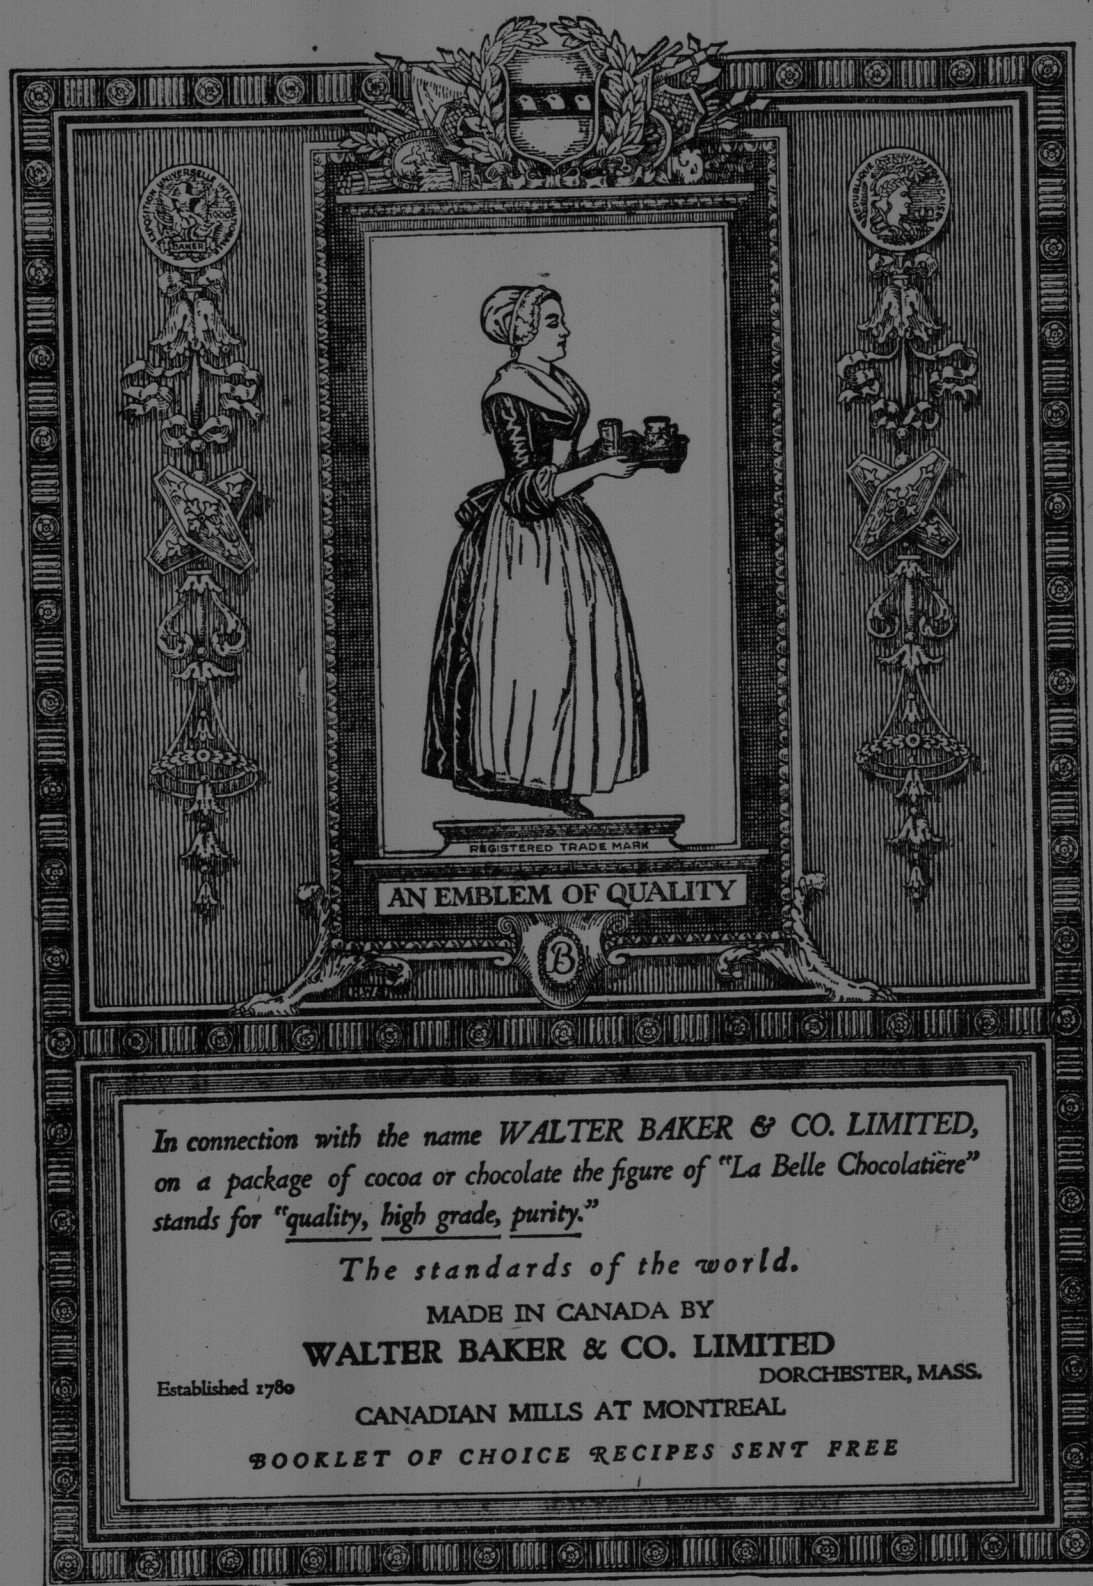 EXPOSITION UNIVERSELLE INTERNATIONALE
1900
BAKER
REPUBLIQUE
REGISTERED TRADE MARK
AN EMBLEM OF QUALITY
B
In connection with the name WALTER BAKER & CO. LIMITED,
on a package of cocoa or chocolate the figure of "La Belle Chocolatière"
stands for "quality, high grade, purity."
The standards of the world.
MADE IN CANADA BY
WALTER BAKER & CO. LIMITED
Established 1780
DORCHESTER, MASS.
CANADIAN MILLS AT MONTREAL
BOOKLET OF CHOICE RECIPES SENT FREE